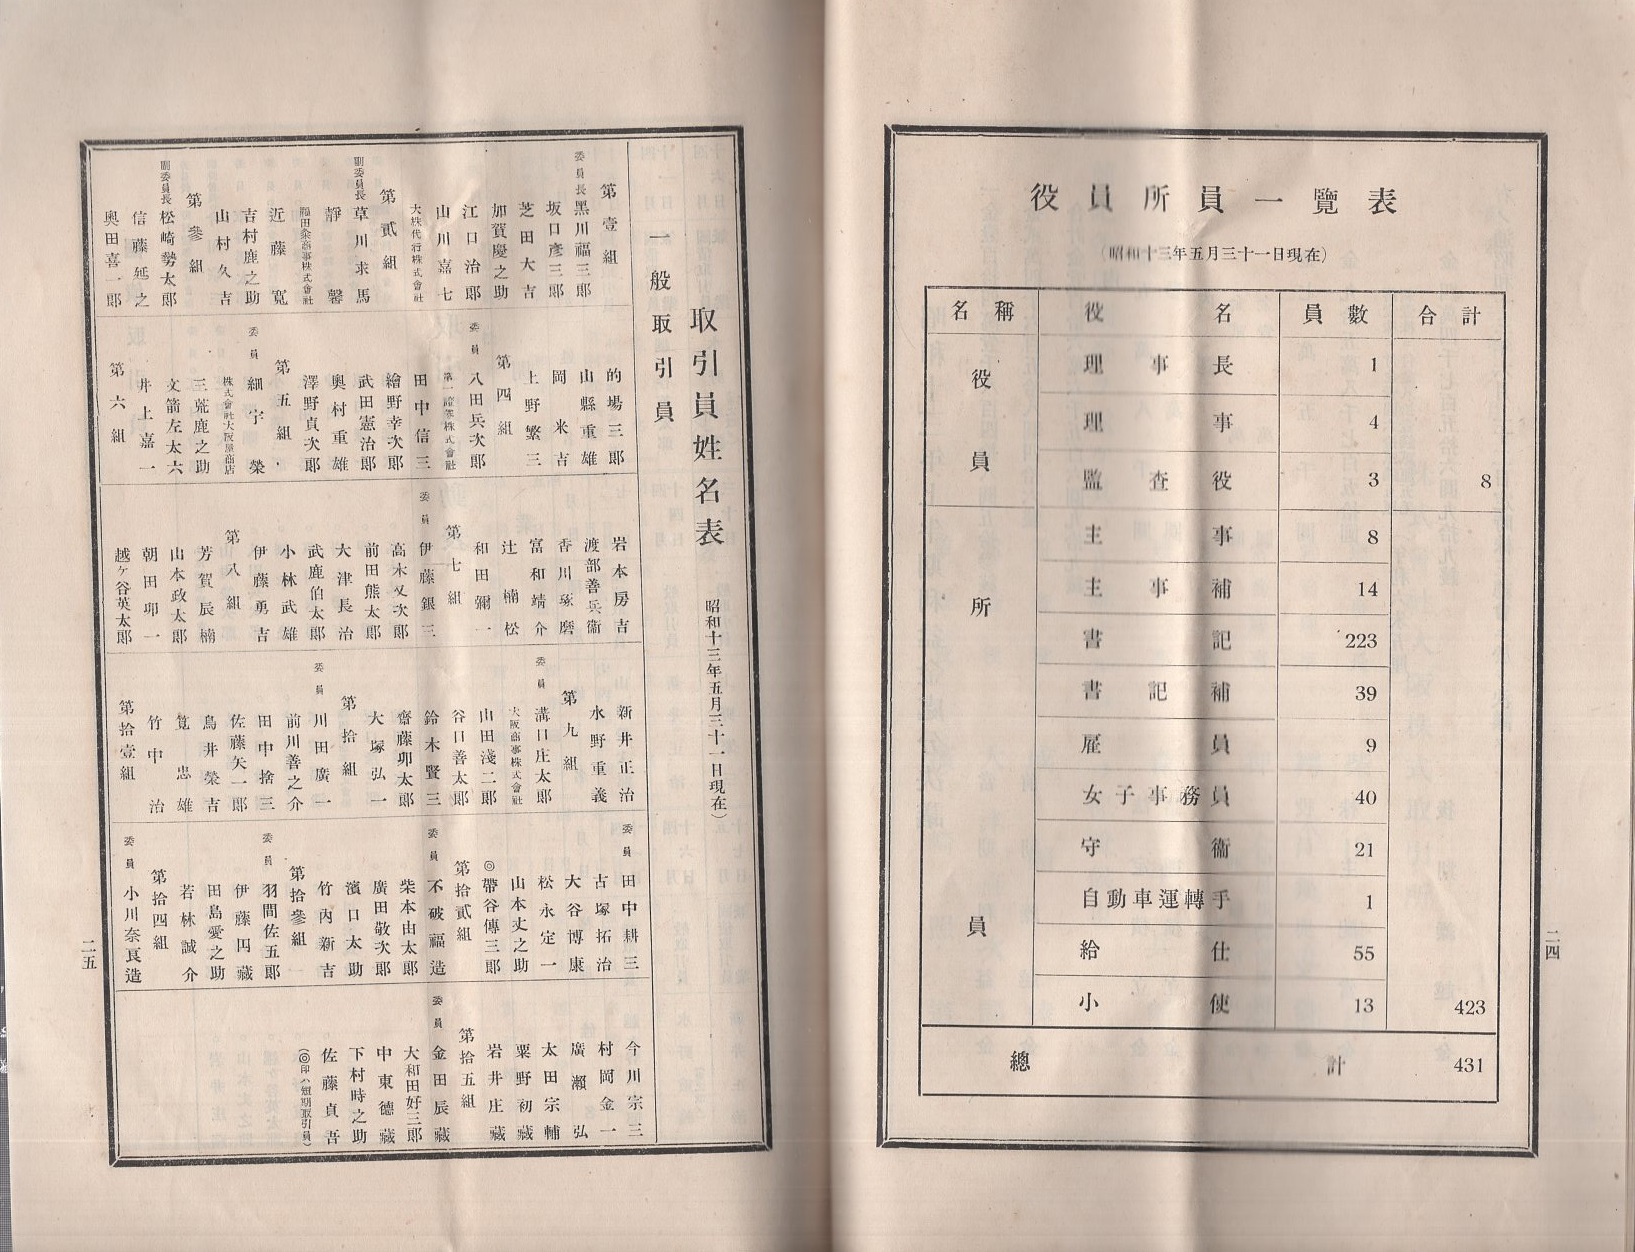 役員所員一覽表
(昭和十三年五月三十一日現在)
名稱 役名 員數 合計
役員
理事長 1
理事 4
監査役 3 8
所員
主事 8
主事補 14
書記 223
書記補 39
雇員 9
女子事務員 40
守衞 21
自動車運轉手 1
給仕 55
小使 13 423
總計 431
二四
取引員姓名表 昭和十三年五月三十一日現在)
一般取引員
第壹組
委員長 黑川福三郎
坂口彥三郎
芝田大吉
加賀慶之助
江口治郎
山川嘉七
大株代行株式會社
第貳組
副委員長 草川求馬
靜馨
福田粂商事株式會社
近藤寬
吉村鹿之助
山村久吉
第參組
副委員長 松崎勢太郎
信藤延之
奧田喜一郎
的場三郎
山縣重雄
岡米吉
上野繁三
第四組
委員 八田兵次郎
第一證券株式會社
田中信三
繪野幸次郎
武田憲治郎
奧村重雄
澤野貞次郎
第五組
委員 細宇榮
株式會社大阪屋商店
三瓷鹿之助
文箭左太六
井上嘉一
第六組
岩本房吉
渡部善兵衞
香川琢磨
富和靖介
辻楠松
和田彌一
第七組
委員 伊藤銀三
高木又次郎
前田熊太郎
大津長治
武鹿伯太郎
小林武雄
伊藤勇吉
第八組
芳賀辰楠
山本政太郎
朝田卯一
越ケ谷英太郎
新井正治
水野重義
第九組
委員 溝口庄太郎
大阪商事株式會社
山田淺二郎
谷口善太郎
鈴木賢三
齋藤卯太郎
大塚弘一
第拾組
委員 川田廣一
前川善之介
田中捨三
佐藤矢一郎
鳥井榮吉
筧忠雄
竹中治
第拾壹組
委員 田中耕三
古塚拓治
大谷博康
松永定一
山本丈之助
◎帶谷傳三郎
第拾貳組
委員 不破福造
柴本由太郎
廣田敬次郎
濱口太助
竹內新吉
第拾參組
委員 羽間佐五郎
伊藤円藏
田島愛之助
若林誠介
第拾四組
委員 小川奈良造
今川宗三
村岡金一
廣瀨弘
太田宗輔
粟野初藏
岩井庄藏
第拾五組
委員 金田辰藏
大和田好三郎
中東德藏
下村時之助
佐藤貞吾
(◎印ハ短期取引員)
二五